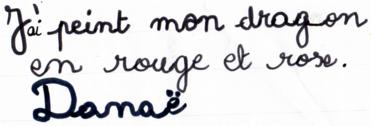 J'ai peint mon dragon
en rouge et rose.
Danaë